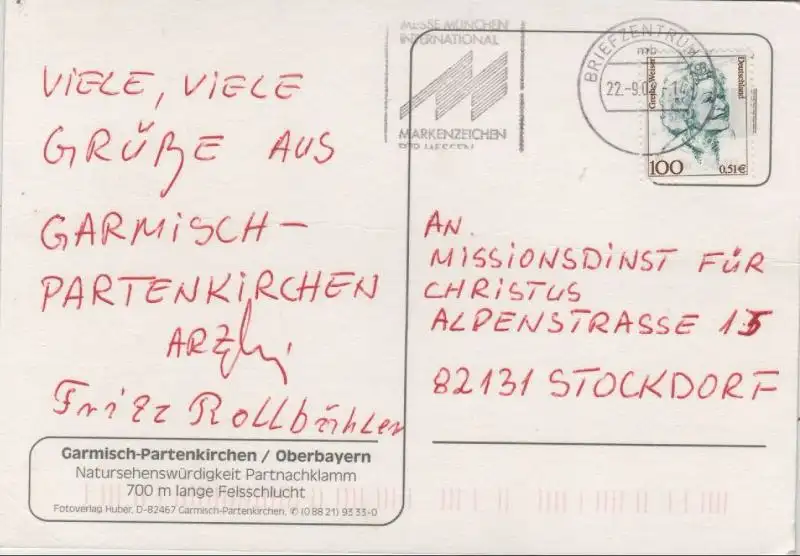 VIELE, VIELE
GRÜßE AUS
GARMISCH-
PARTENKIRCHEN
Fritz Rollbühler
Garmisch-Partenkirchen / Oberbayern
Natursehenswürdigkeit Partnachklamm
700 m lange Felsschlucht
Fotoverlag Huber, D-82467 Garmisch-Partenkirchen, ✆ (0 88 21) 93 33-0
MESSE MÜNCHEN
INTERNATIONAL
MARKENZEICHEN
DER MESSEN
BRIEFZENTRUM
Grethe Weiser
Deutschland
100
0,51€
AN.
MISSIONSDINST FÜR
CHRISTUS
ALPENSTRASSE 15
82131 STOCKDORF